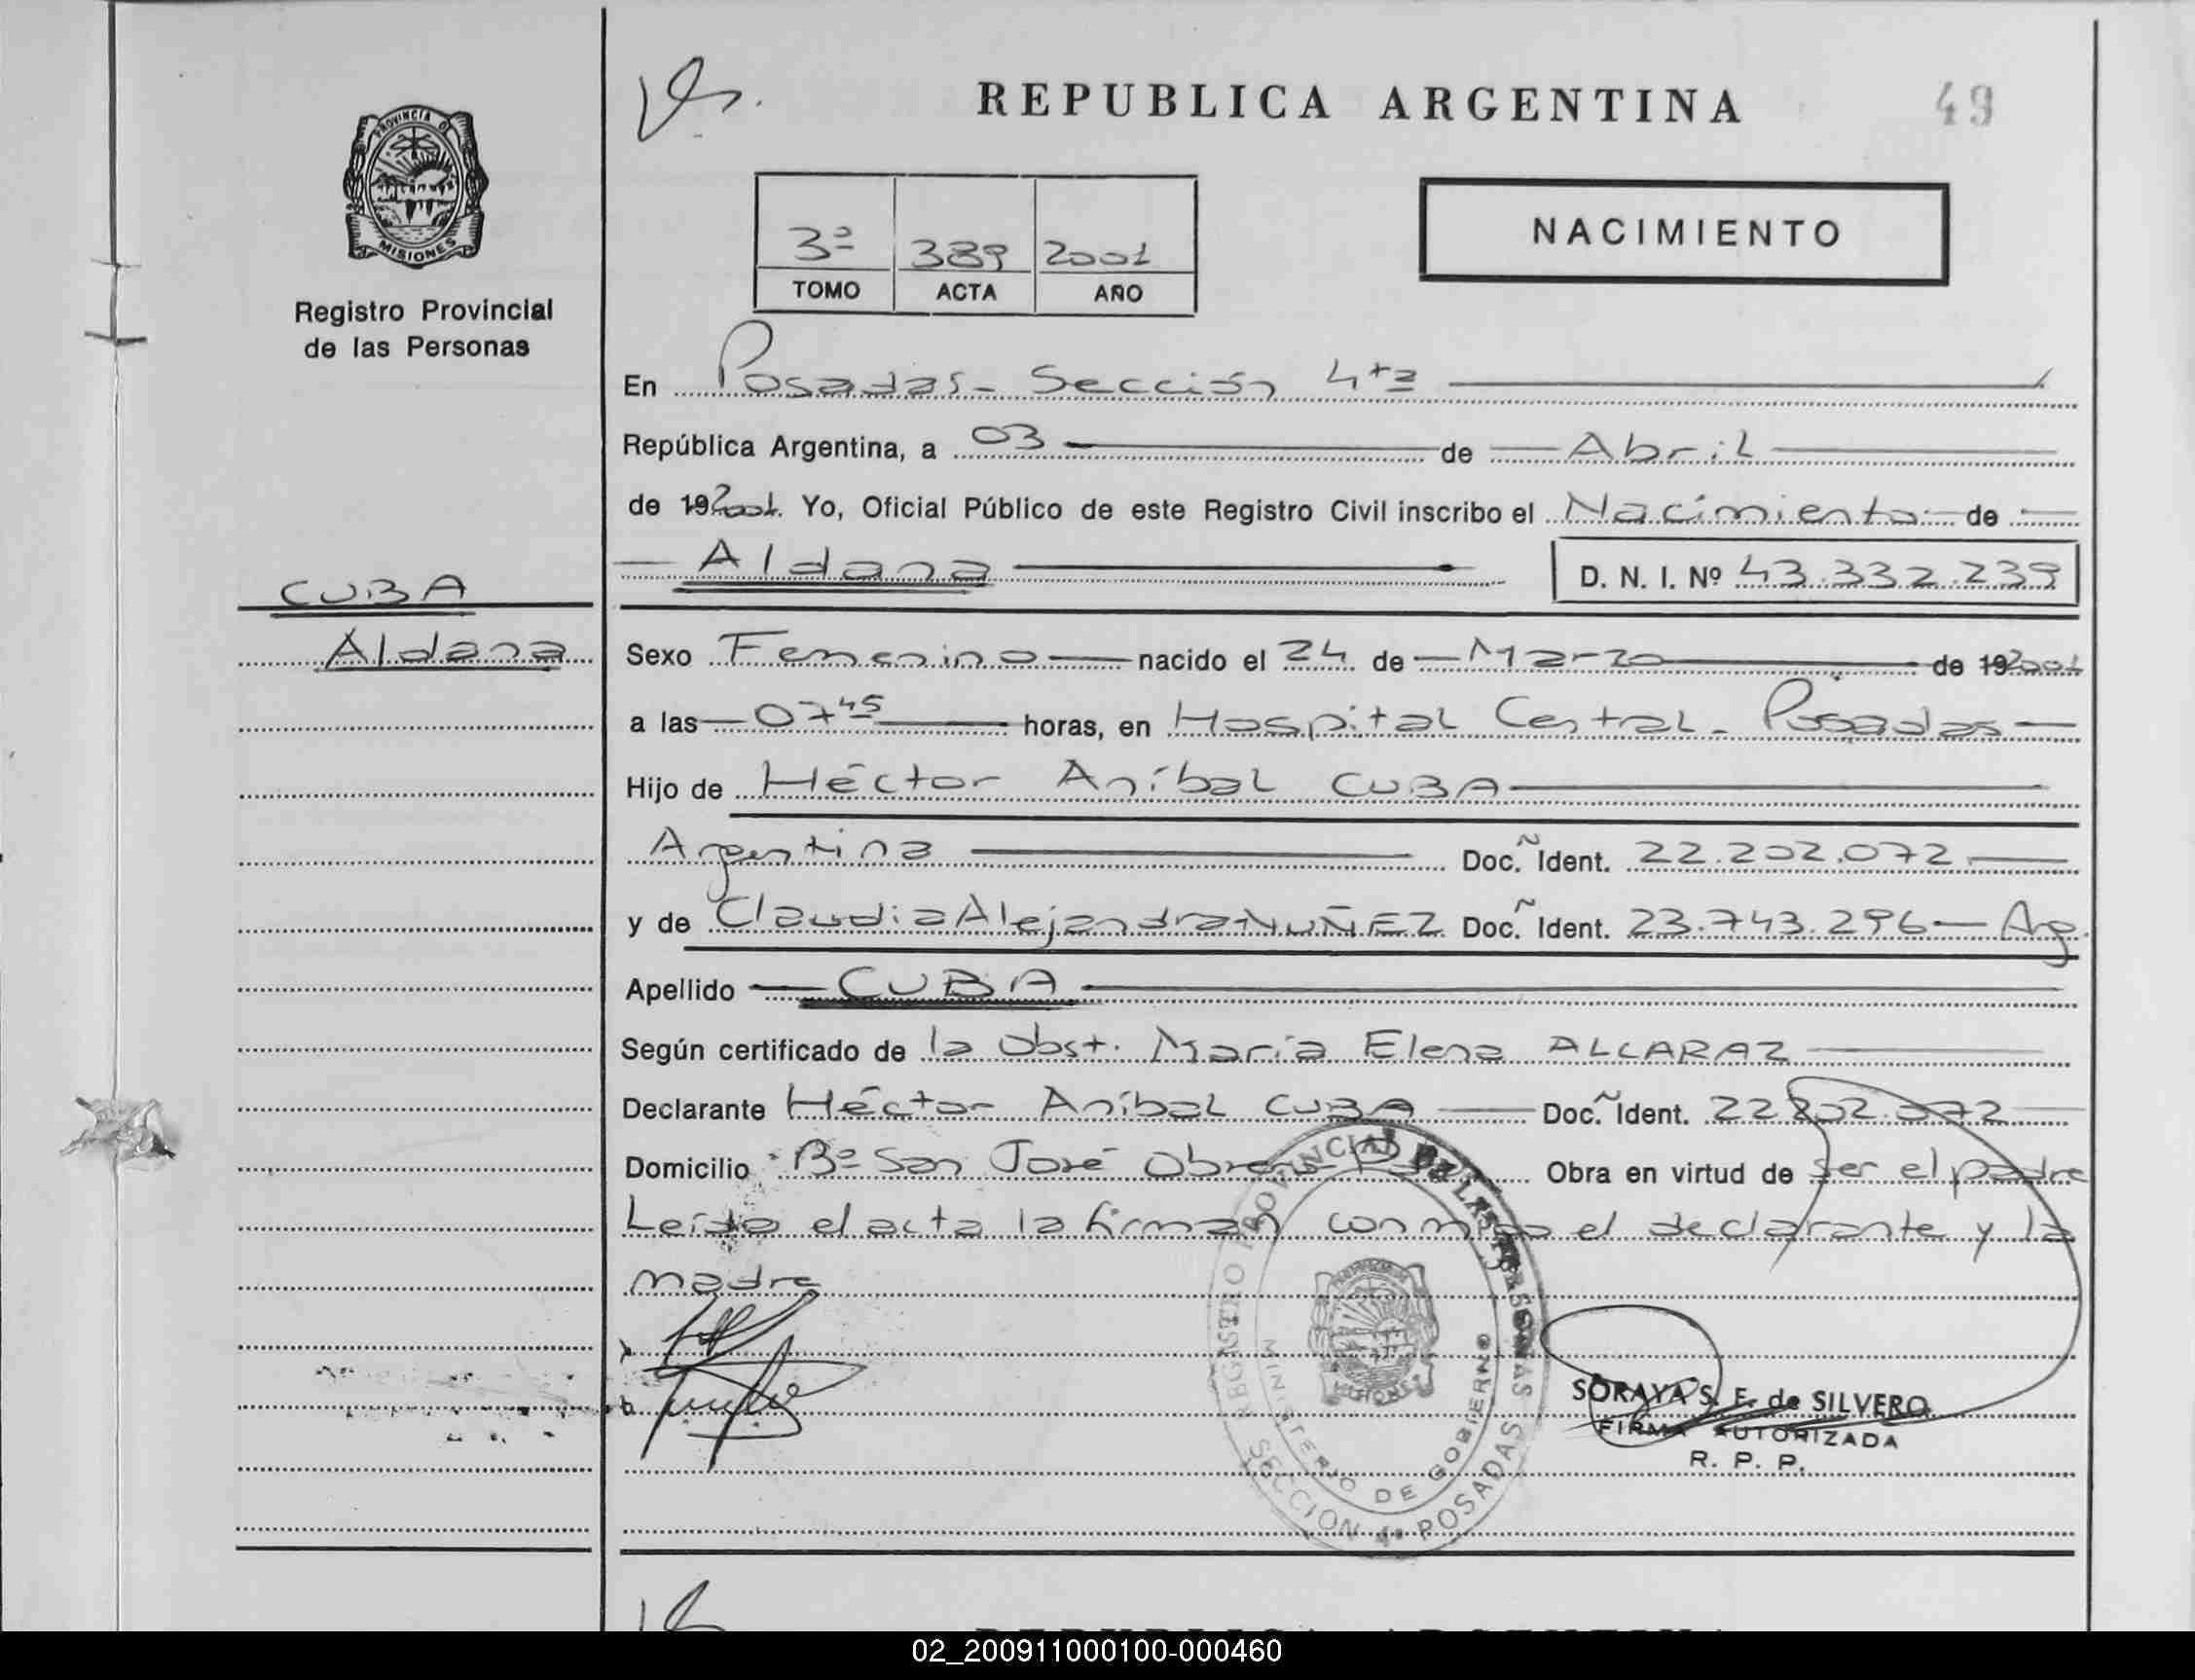 REPUBLICA ARGENTINA
49
PROVINCIA D
MISIONES
Registro Provincial
de las Personas
3ª 389 2001
TOMO ACTA AÑO
NACIMIENTO
En Posadas - Sección 4ta
República Argentina, a 03 de Abril
de 192001. Yo, Oficial Público de este Registro Civil inscribo el Nacimiento de
Aldana D. N. I. Nº 43.332.239
CUBA
Aldana
Sexo Femenino nacido el 24 de Marzo de 192001
a las 07 45 horas, en Hospital Central - Posadas
Hijo de Héctor Aníbal CUBA
Argentina Doc. Ident. 22.202.072
y de Claudia Alejandra NUÑEZ Doc. Ident. 23.743.296 - Arg.
Apellido CUBA
Según certificado de la Obst. María Elena ALCARAZ
Declarante Héctor Aníbal CUBA Doc. Ident. 22.202.072
Domicilio Bº San José Obrero Obra en virtud de ser el padre
Leída el acta la firman conmigo el declarante y la
madre
REGISTRO PROVINCIAL DE LAS PERSONAS
MINISTERIO DE GOBIERNO
SECCION 4ª POSADAS
SORAYA S. F. de SILVERO
FIRMA AUTORIZADA
R. P. P.
02_200911000100-000460